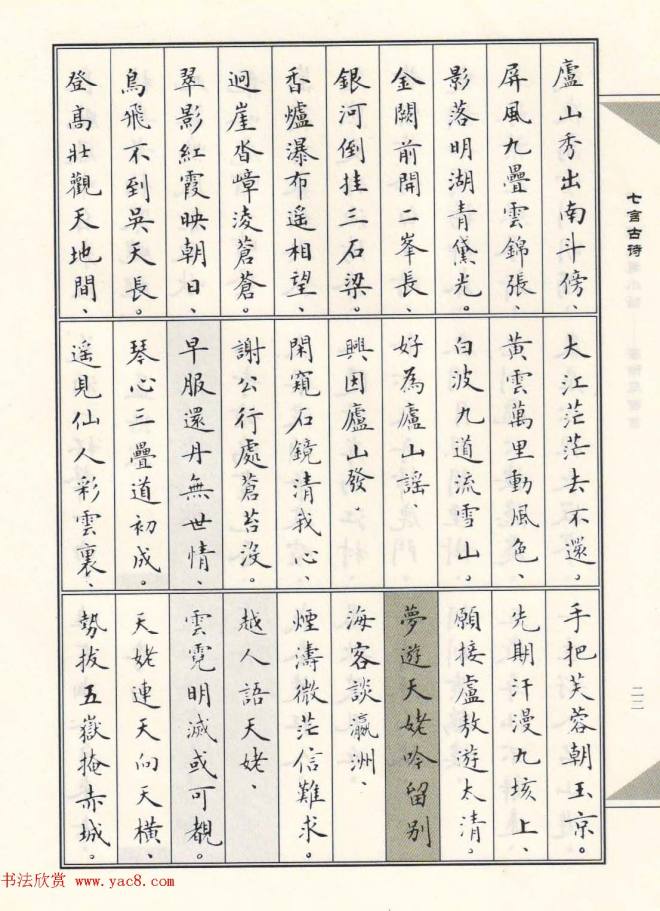 七言古诗
廬山秀出南斗傍、
屏風九疊雲錦張、
影落明湖青黛光。
金闕前開二峯長、
銀河倒挂三石梁。
香爐瀑布遥相望、
迥崖沓嶂淩蒼蒼。
翠影紅霞映朝日、
鳥飛不到吳天長。
登高壯觀天地間、
大江茫茫去不還。
黄雲萬里動風色、
白波九道流雪山。
好為廬山謡、
興因廬山發、
閑窺石鏡清我心、
謝公行處蒼苔没。
早服還丹無世情、
琴心三疊道初成。
遥見仙人彩雲裏、
手把芙蓉朝玉京。
先期汗漫九垓上、
願接盧敖遊太清。
夢遊天姥吟留别
海客談瀛洲、
煙濤微茫信難求。
越人語天姥、
雲霓明滅或可覩。
天姥連天向天横、
勢拔五嶽掩赤城。
二二
书法欣赏 www.yac8.com